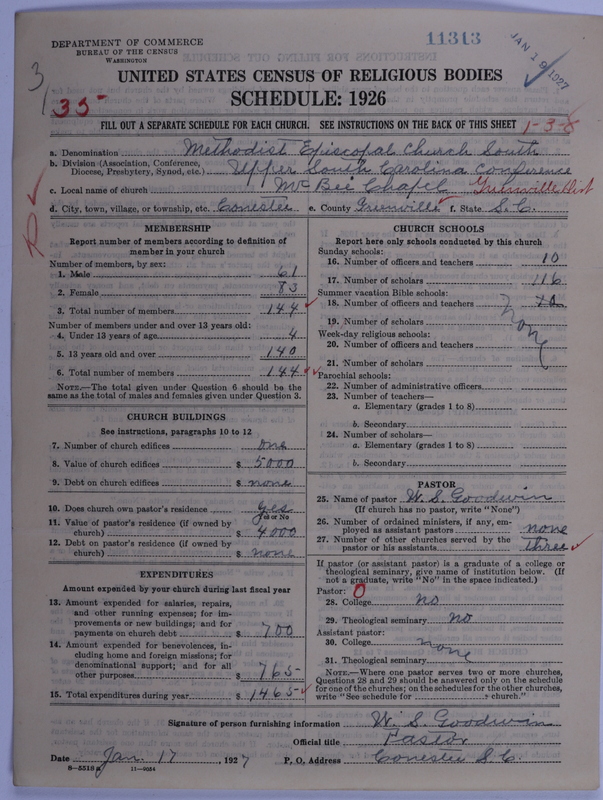 DEPARTMENT OF COMMERCE
BUREAU OF THE CENSUS
WASHINGTON
11313
JAN 19 1927
3
35-
UNITED STATES CENSUS OF RELIGIOUS BODIES
SCHEDULE: 1926
FILL OUT A SEPARATE SCHEDULE FOR EACH CHURCH. SEE INSTRUCTIONS ON THE BACK OF THIS SHEET
1-3-8
a. Denomination Methodist Episcopal Church South
b. Division (Association, Conference, Diocese, Presbytery, Synod, etc.) Upper South Carolina Conference
c. Local name of church McBee Chapel Greenville Dist
d. City, town, village, or township, etc. Conestee e. County Greenville f. State S.C.
MEMBERSHIP
Report number of members according to definition of
member in your church
Number of members, by sex:
1. Male 61
2. Female 83
3. Total number of members 144
Number of members under and over 13 years old:
4. Under 13 years of age 4
5. 13 years old and over 140
6. Total number of members 144
NOTE.—The total given under Question 6 should be the
same as the total of males and females given under Question 3.
CHURCH BUILDINGS
See instructions, paragraphs 10 to 12
7. Number of church edifices one
8. Value of church edifices $ 5000
9. Debt on church edifices $ none
10. Does church own pastor's residence? yes
Yes or No
11. Value of pastor's residence (if owned by
church) $ 4000
12. Debt on pastor's residence (if owned by
church) $ none
EXPENDITURES
Amount expended by your church during last fiscal year
13. Amount expended for salaries, repairs,
and other running expenses; for im-
provements or new buildings; and for
payments on church debt $ 700
14. Amount expended for benevolences, in-
cluding home and foreign missions; for
denominational support; and for all
other purposes $ 765-
15. Total expenditures during year $ 1465-
CHURCH SCHOOLS
Report here only schools conducted by this church
Sunday schools:
16. Number of officers and teachers 10
17. Number of scholars 116
Summer vacation Bible schools:
18. Number of officers and teachers
19. Number of scholars none
Week-day religious schools:
20. Number of officers and teachers
21. Number of scholars
Parochial schools:
22. Number of administrative officers
23. Number of teachers—
a. Elementary (grades 1 to 8)
b. Secondary
24. Number of scholars—
a. Elementary (grades 1 to 8)
b. Secondary
PASTOR
25. Name of pastor W. S. Goodwin
(If church has no pastor, write "None")
26. Number of ordained ministers, if any, em-
ployed as assistant pastors none
27. Number of other churches served by the
pastor or his assistants three
If pastor (or assistant pastor) is a graduate of a college or
theological seminary, give name of institution below. (If
not a graduate, write "No" in the space indicated.)
Pastor: 0
28. College no
29. Theological seminary no
Assistant pastor:
30. College none
31. Theological seminary
NOTE.—Where one pastor serves two or more churches,
Questions 28 and 29 should be answered only on the schedule
for one of the churches; on the schedules for the other churches,
write "See schedule for church."
Signature of person furnishing information W. S. Goodwin
Official title Pastor
Date Jan. 17, 1927 P. O. Address Conestee S.C.
8—5518 a 11—9054